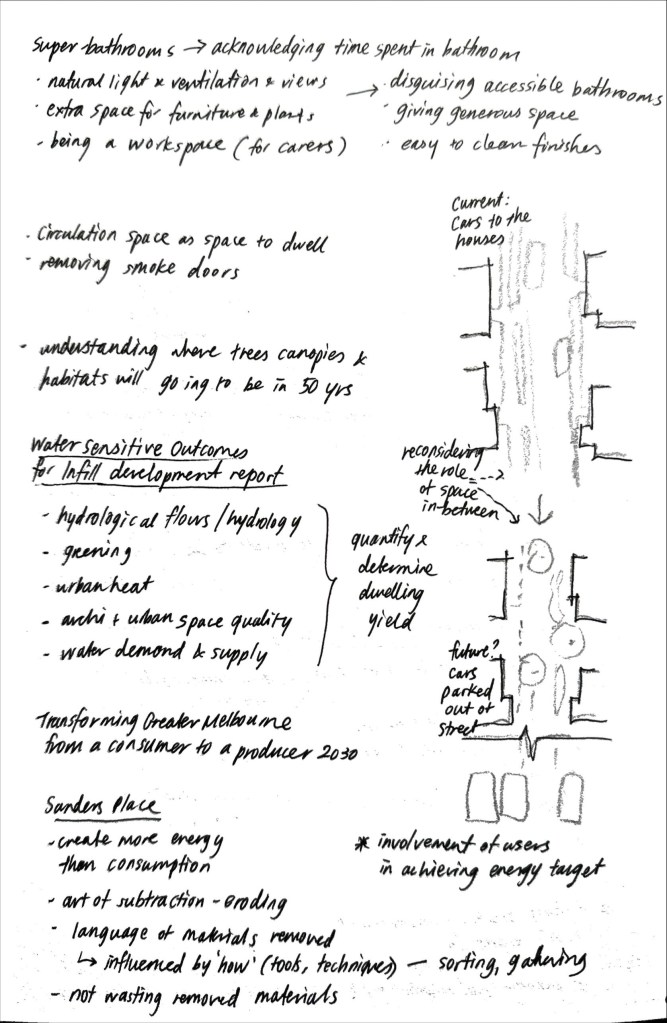 Super-bathrooms → acknowledging time spent in bathroom
· natural light & ventilation & views
· extra space for furniture & plants
· being a workspace (for carers)
→ · disguising accessible bathrooms
· giving generous space
· easy to clean finishes
· circulation space as space to dwell
· removing smoke doors
· understanding where trees canopies &
habitats will going to be in 50 yrs
Current:
cars to the
houses
reconsidering
the role
of space
in-between
Water Sensitive Outcomes
for Infill development report
- hydrological flows/hydrology
- greening
- urban heat
- archi + urban space quality
- water demand & supply
quantify &
determine
dwelling
yield
future?
cars
parked
out of
street
Transforming Greater Melbourne
from a consumer to a producer 2030
Sanders Place
- create more energy
than consumption
- art of subtraction - eroding
- language of materials removed
↳ influenced by 'how' (tools, techniques) — sorting, gathering
- not wasting removed materials
* involvement of users
in achieving energy target